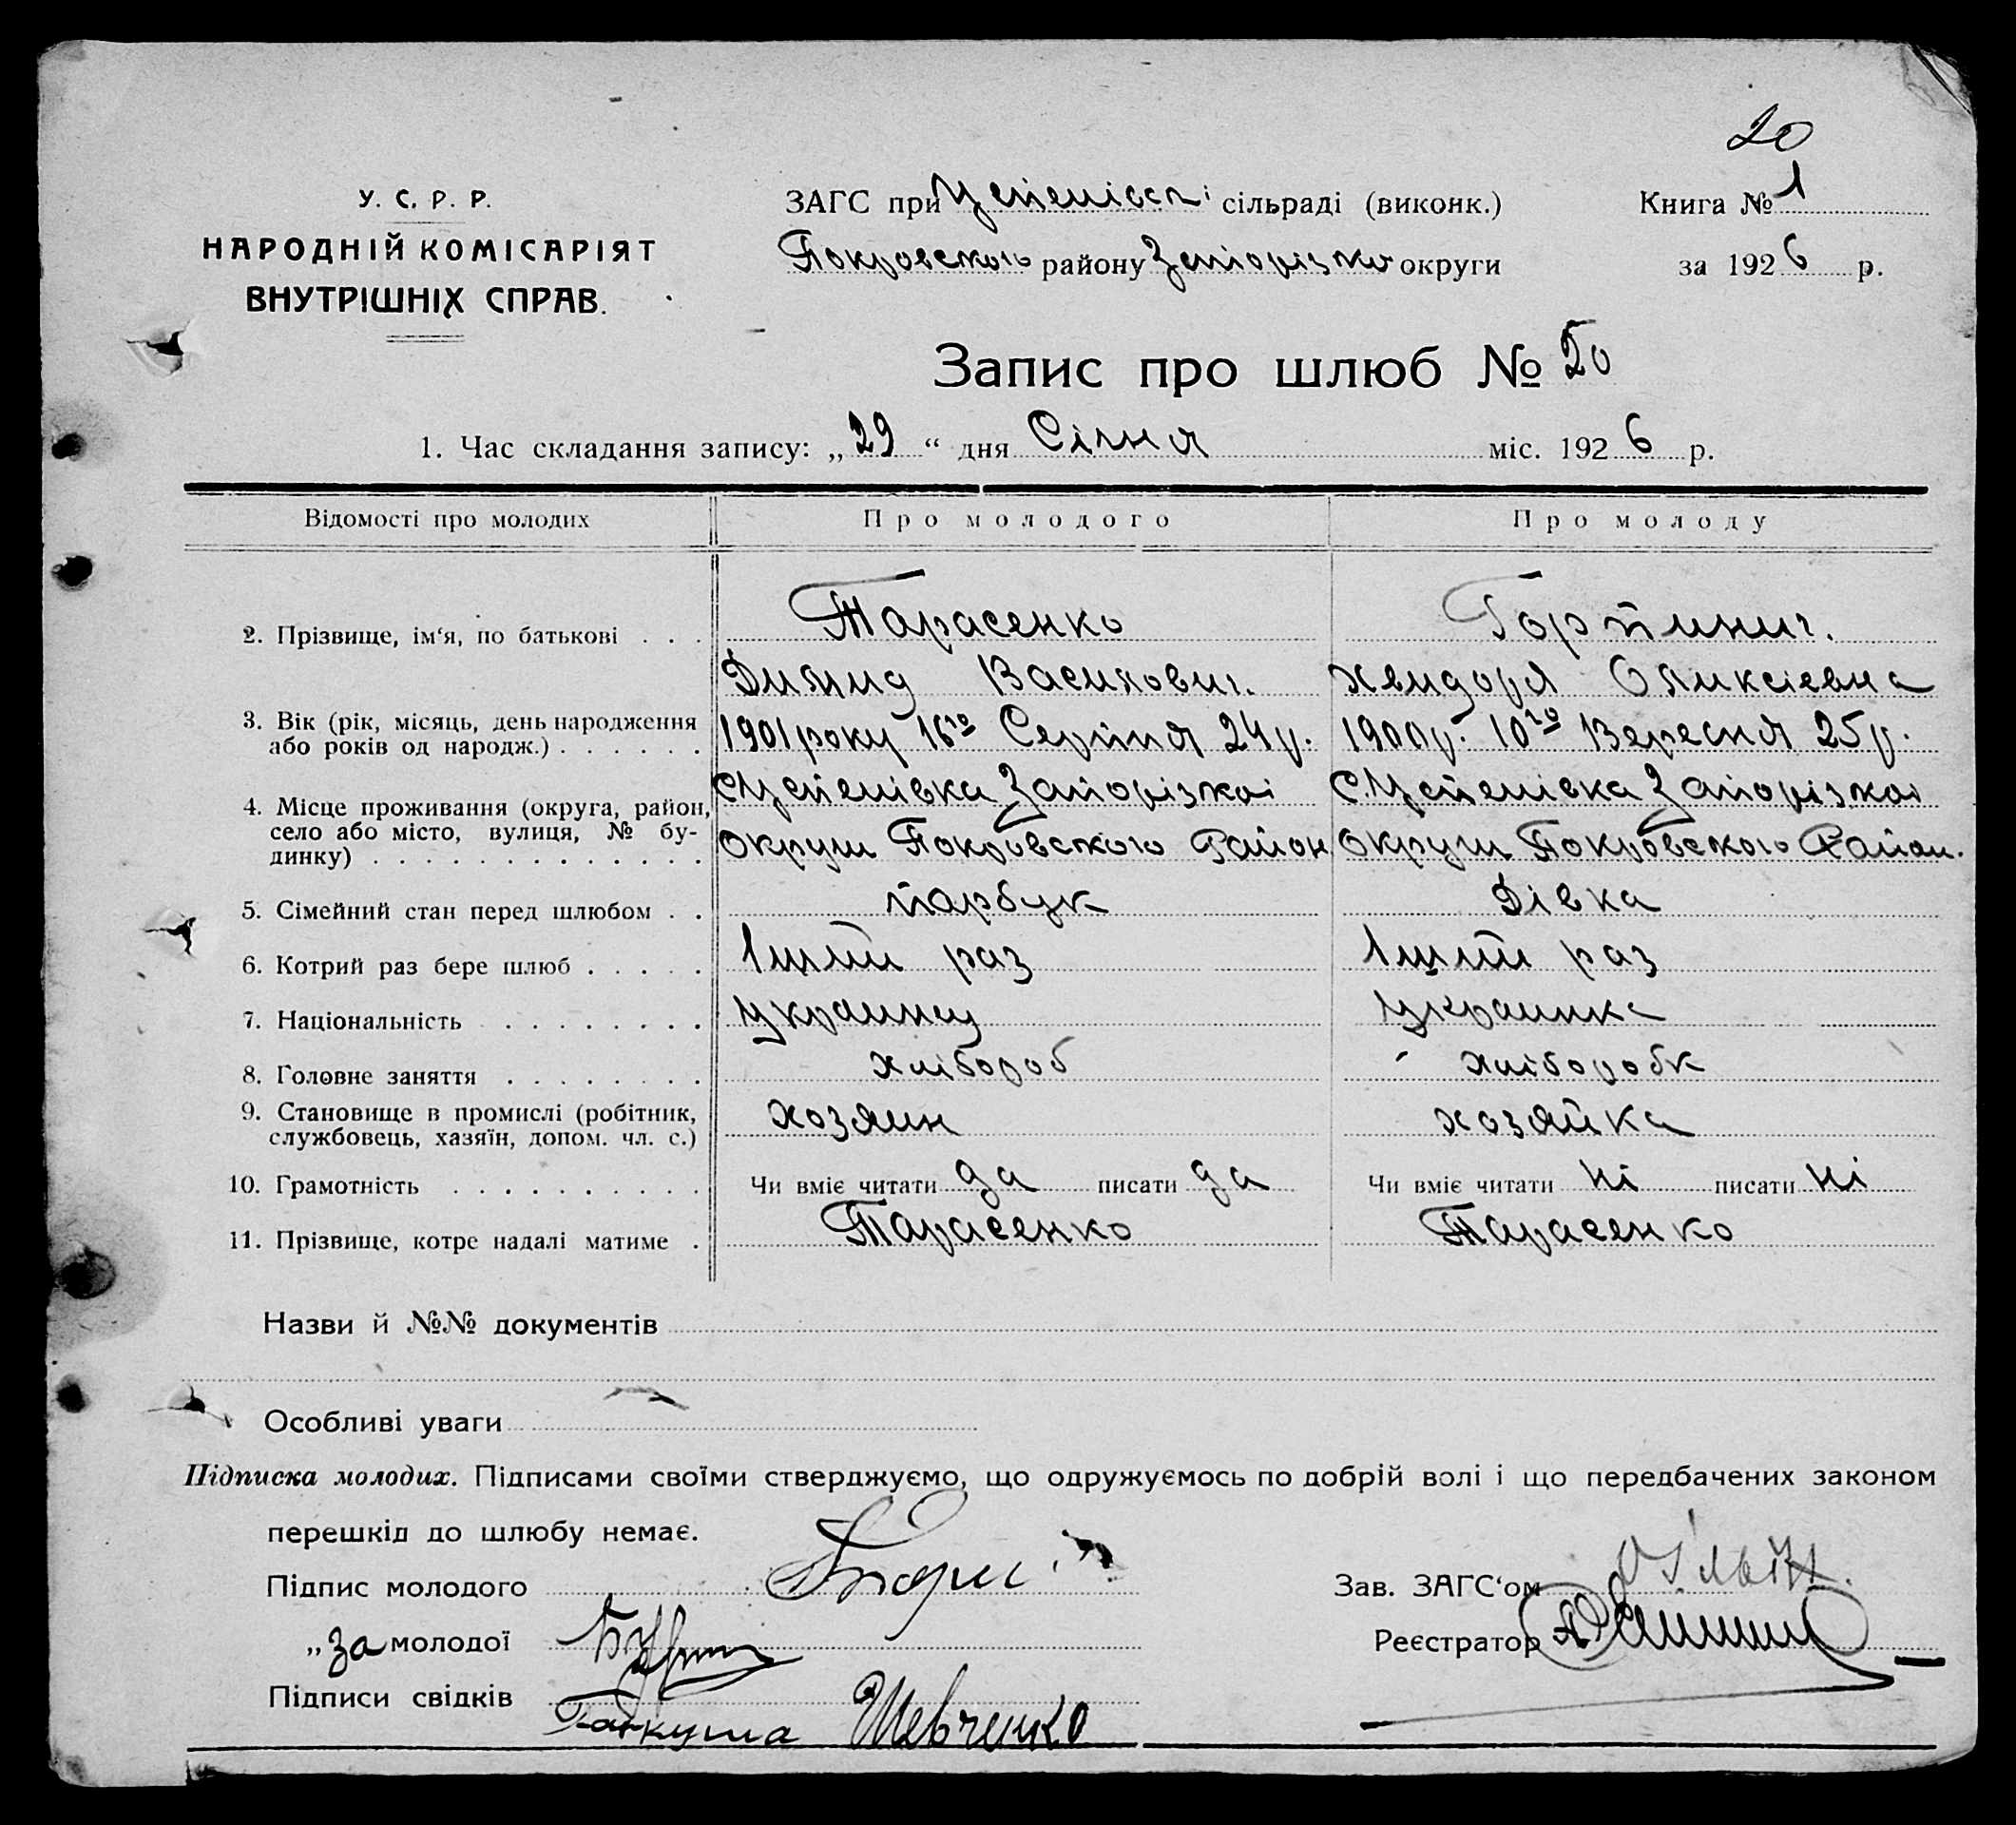 20
У. С. Р. Р.
НАРОДНІЙ КОМІСАРІЯТ
ВНУТРІШНІХ СПРАВ.
ЗАГС при сільраді (виконк.)
Покровского району Запорізко округи
Книга № 1
за 1926 р.
Запис про шлюб № 20
1. Час складання запису: „29“ дня Січня міс. 1926 р.
Відомості про молодих Про молодого Про молоду
2. Прізвище, ім'я, по батькові . . . Тарасенко
Димид Василович. Хвидоря Оликсіевна
3. Вік (рік, місяць, день народження або років од народж.) . . . . . . 1901 року 16го Серпня 24 р. 1900 р. 10го Вересня 25 р.
4. Місце проживання (округа, район, село або місто, вулиця, № будинку) . . . . . . . . . . . . . с Успенівка Запорізкоі с Успенівка Запорізкоі
округи Покровского Район округи Покровского Район.
5. Сімейний стан перед шлюбом . . парбук Дівка
6. Котрий раз бере шлюб . . . . . 1ший раз 1ший раз
7. Національність . . . . . . . . украинец украинка
8. Головне заняття . . . . . . . . хлібороб хлібороbк
9. Становище в промислі (робітник, службовець, хазяїн, допом. чл. с.) хозяин хозяйка
10. Грамотність . . . . . . . . . . Чи вміє читати да писати да Чи вміє читати ні писати ні
11. Прізвище, котре надалі матиме . Тарасенко Тарасенко
Назви й №№ документів
Особливі уваги
Підписка молодих. Підписами своїми стверджуємо, що одружуємось по добрій волі і що передбачених законом
перешкід до шлюбу немає.
Підпис молодого
„ за молодої
Підписи свідків
Шевченко
Зав. ЗАГС'ом
Реєстратор